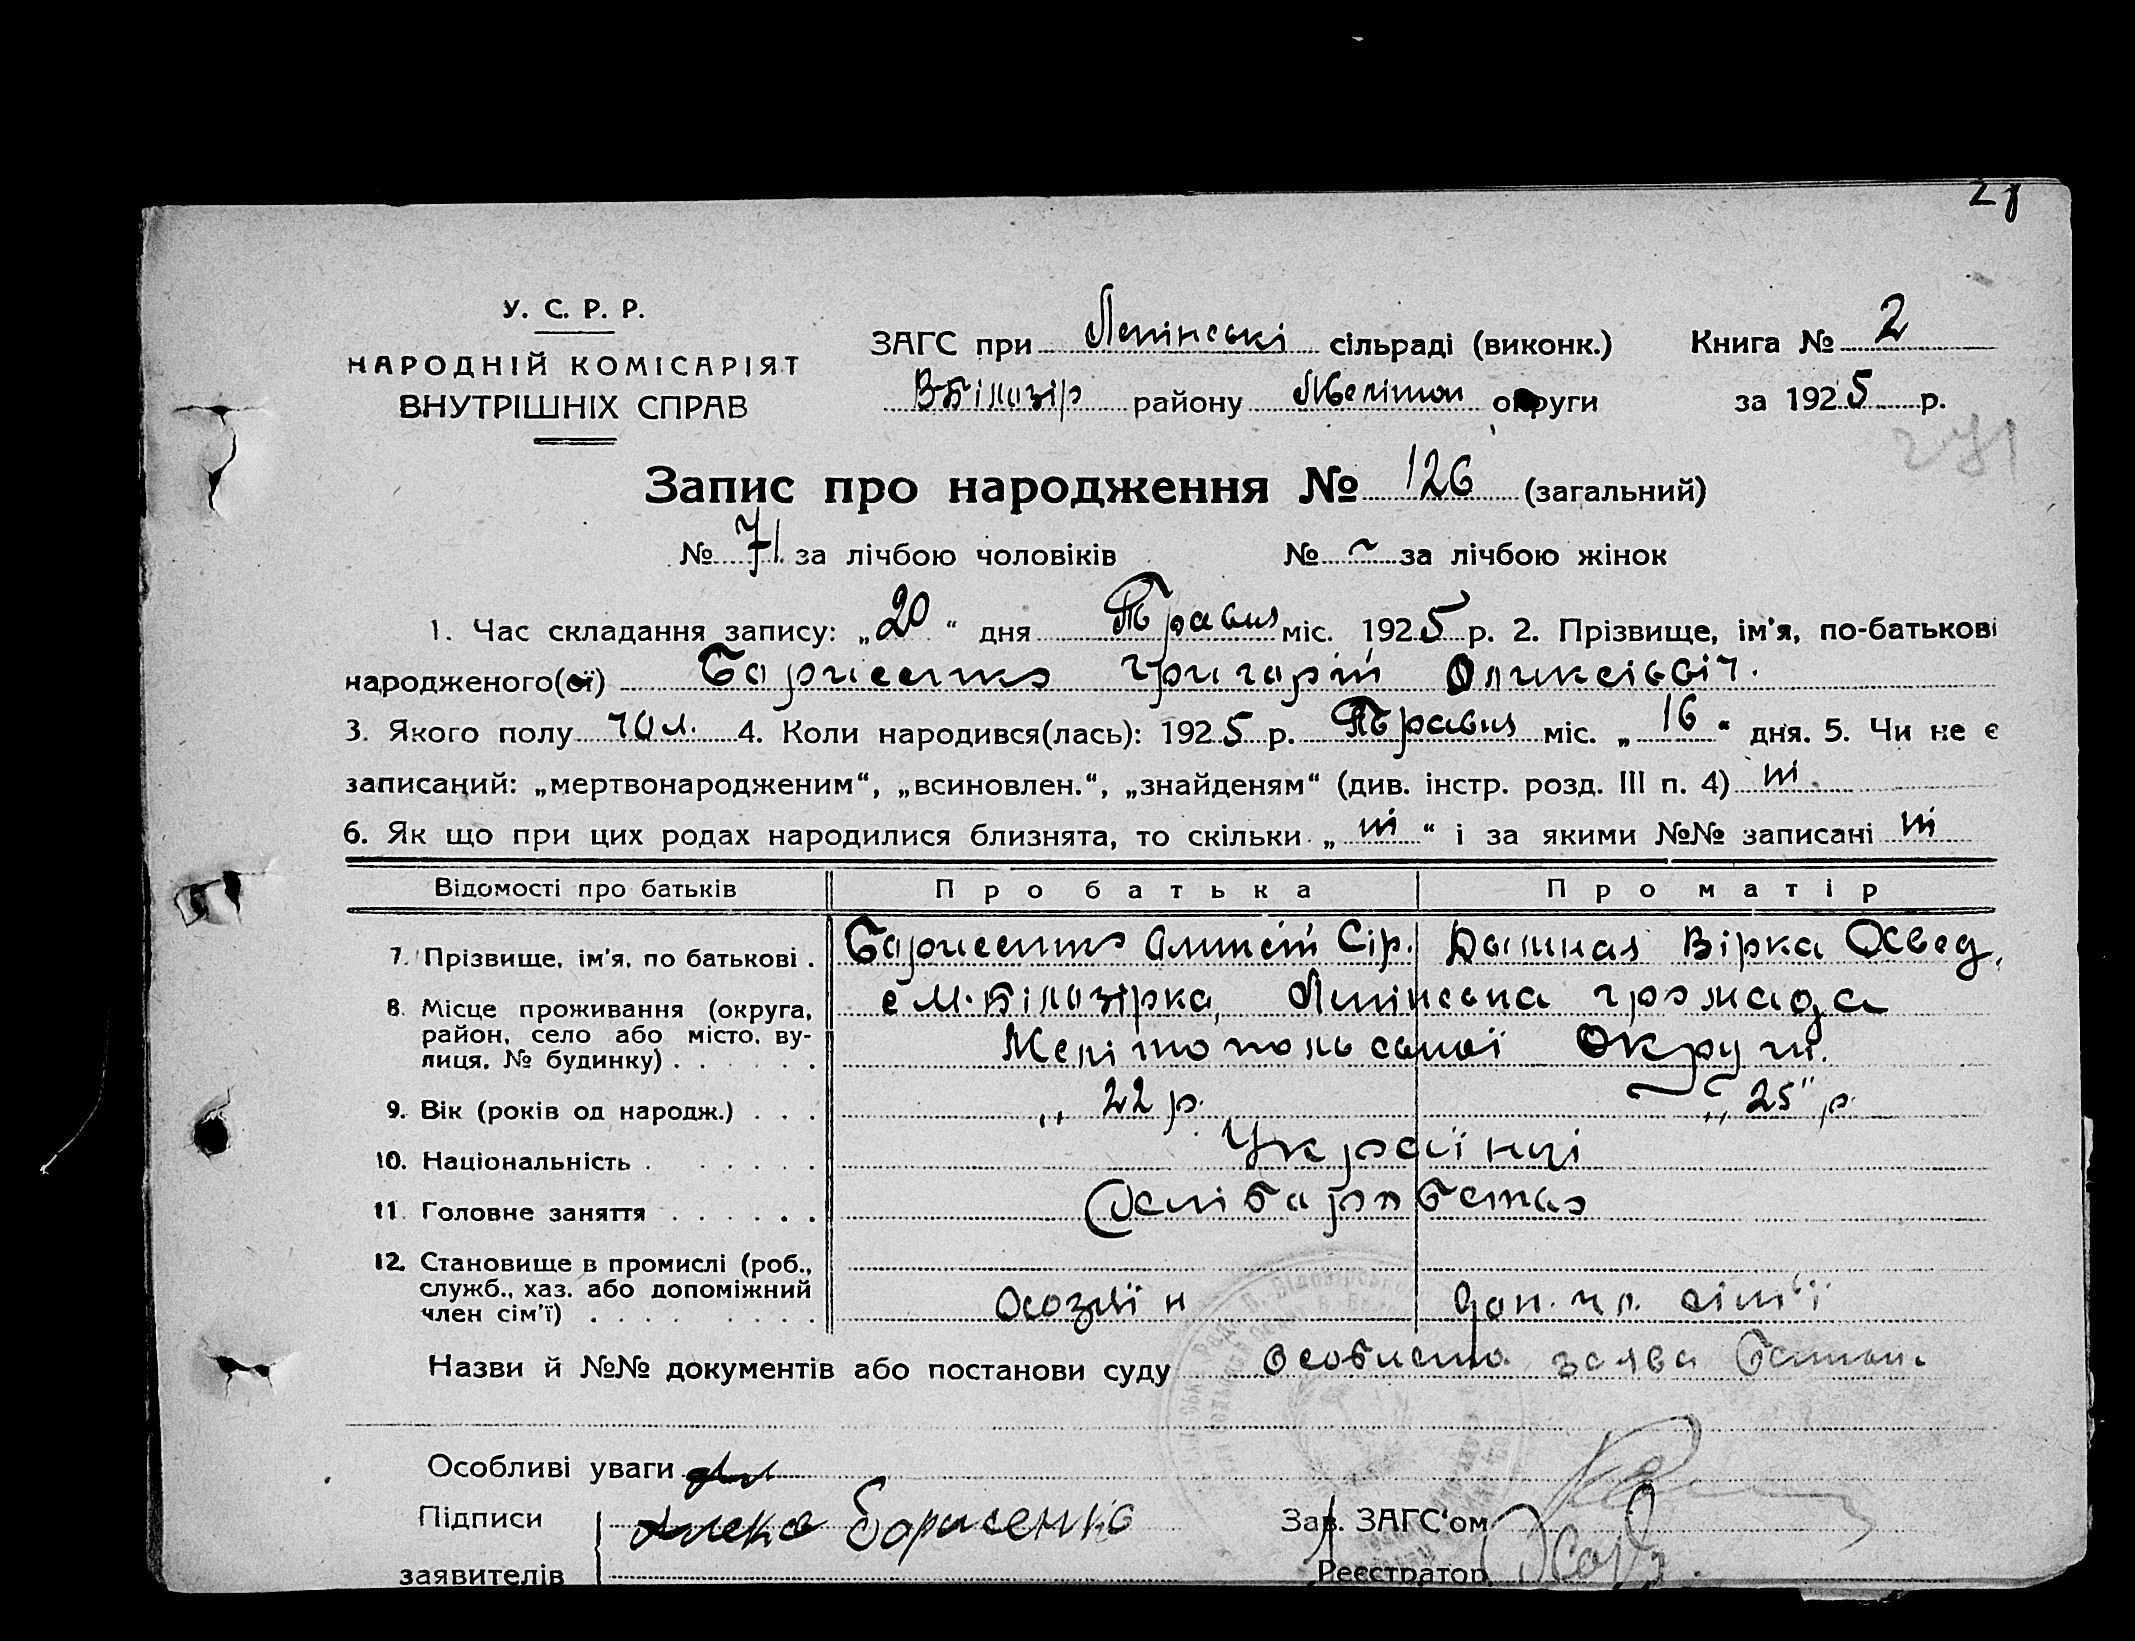 У. С. Р. Р.
НАРОДНІЙ КОМІСАРІЯТ
ВНУТРІШНІХ СПРАВ
ЗАГС при Ленінські сільраді (виконк.) Книга № 2
ВБілозір району Мелітоп округи за 1925 р.
271
Запис про народження № 126 (загальний)
№ 71 за лічбою чоловіків № – за лічбою жінок
1. Час складання запису: „20“ дня Травня міс. 1925 р. 2. Прізвище, ім'я, по-батькові
народженого(ої) Борисенко Григорій Оликсієвіч.
3. Якого полу чол. 4. Коли народився(лась): 1925 р. Травня міс. „16“ дня. 5. Чи не є
записаний: „мертвонародженим“, „всиновлен.“, „знайденям“ (див. інстр. розд. III п. 4) ні
6. Як що при цих родах народилися близнята, то скільки „ні“ і за якими №№ записані ні
Відомості про батьків Про батька Про матір
7. Прізвище, ім'я, по батькові . Борисенко Сір. Вірка
8. Місце проживання (округа, район, село або місто, вулиця, № будинку) . . . . . . с М. Білозірка, громада
Мелітопольської Округи.
9. Вік (років од народж.) . . . „ 22 р. „ 25" р.
10. Національність . . . . . . Українці
11. Головне заняття . . . . . .
12. Становище в промислі (роб., служб., хаз. або допоміжний член сім'ї) . . . . . . . . доп. чл. сім'ї
Назви й №№ документів або постанови суду Особиста заява
Особливі уваги
Підписи Борисенко Зав. ЗАГС'ом
заявителів Реєстратор